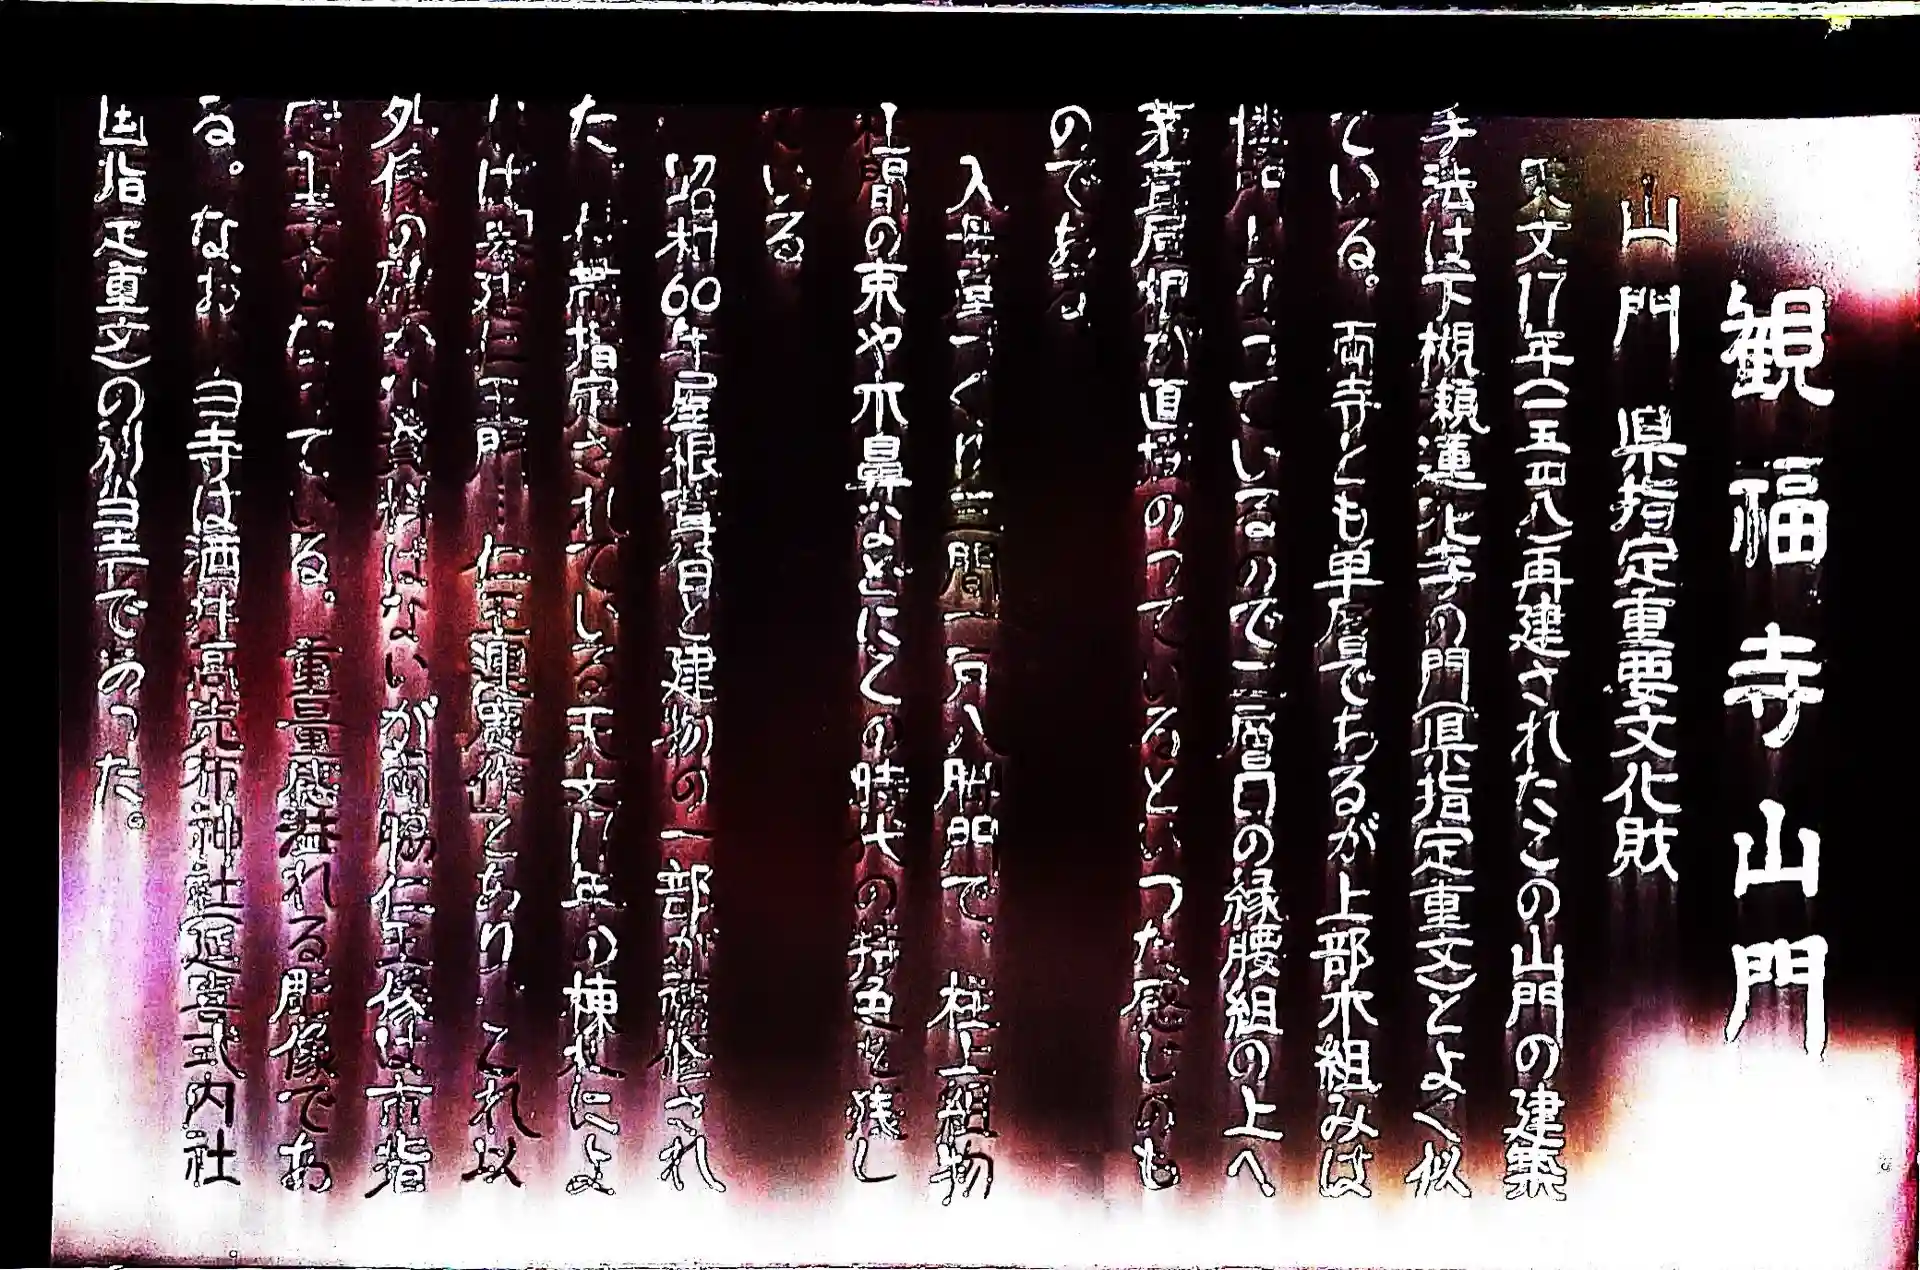 観福寺山門
山門 県指定重要文化財
天文17年(一五四八)再建されたこの山門の建築
手法は下槻瀬蓮花寺の門(県指定重文)とよく似
ている。両寺とも単層であるが上部木組みは
なっているので二層目の縁腰組の上へ
茅葺屋根が直接のっているといった感じのも
のである
入母屋つくり三間一戸八脚門で、柱上組物
間の束や木鼻などにこの時代の特色を残し
いる
昭和60年屋根葺替と建物の一部が補修され
た 指定されている天文17年の棟札によ
仁王門 仁王運慶作」とあり これ以
外像の確かな資料はないが両脇仁王像は市指
なっている。重量感溢れる彫像であ
る。なお 当寺は酒井高売布神社(延喜式内社
国指定重文)の別当寺であった。